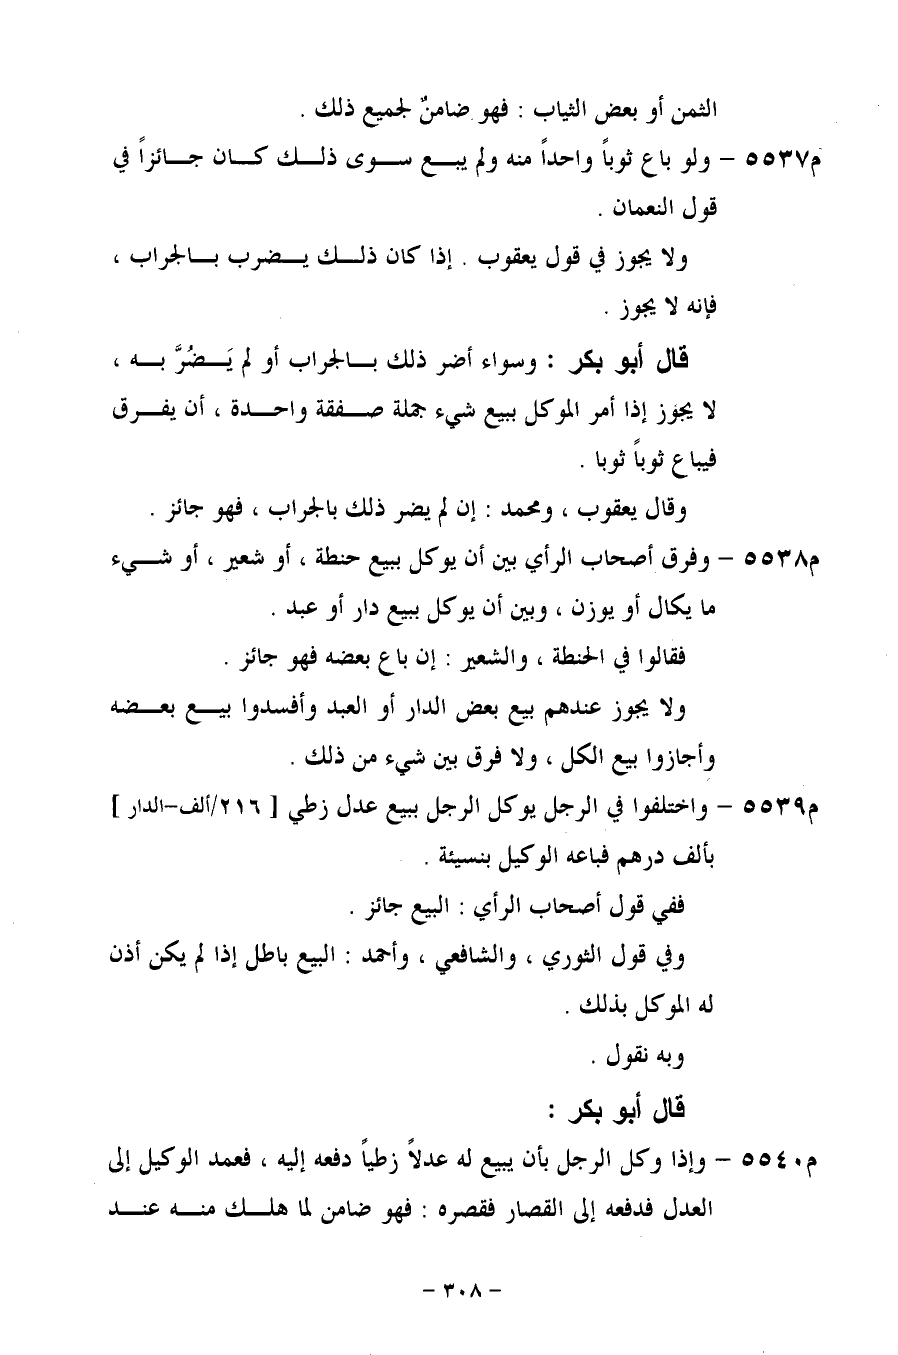 الثمن أو بعض الثياب : فهو ضامنٌ لجميع ذلك .
م٥٥٣٧ – ولو باع ثوباً واحداً منه ولم يبع سوى ذلك كان جائزاً في
قول النعمان .
ولا يجوز في قول يعقوب . إذا كان ذلك يضرب بالجراب ،
فإنه لا يجوز .
قال أبو بكر : وسواء أضر ذلك بالجراب أو لم يَضُرَّ به ،
لا يجوز إذا أمر الموكل ببيع شيء جملة صفقة واحدة ، أن يفرق
فيباع ثوباً ثوبا .
وقال يعقوب ، ومحمد : إن لم يضر ذلك بالجراب ، فهو جائز .
م٥٥٣٨ – وفرق أصحاب الرأي بين أن يوكل ببيع حنطة ، أو شعير ، أو شيء
ما يكال أو يوزن ، وبين أن يوكل ببيع دار أو عبد .
فقالوا في الحنطة ، والشعير : إن باع بعضه فهو جائز .
ولا يجوز عندهم بيع بعض الدار أو العبد وأفسدوا بيع بعضه
وأجازوا بيع الكل ، ولا فرق بين شيء من ذلك .
م٥٥٣٩ – واختلفوا في الرجل يوكل الرجل ببيع عدل زطي [ ٢١٦/ألف–الدار ]
بألف درهم فباعه الوكيل بنسيئة .
ففي قول أصحاب الرأي : البيع جائز .
وفي قول الثوري ، والشافعي ، وأحمد : البيع باطل إذا لم يكن أذن
له الموكل بذلك .
وبه نقول .
قال أبو بكر :
م٥٥٤٠ – وإذا وكل الرجل بأن يبيع له عدلاً زطياً دفعه إليه ، فعمد الوكيل إلى
العدل فدفعه إلى القصار فقصره : فهو ضامن لما هلك منه عند
– ٣٠٨ –